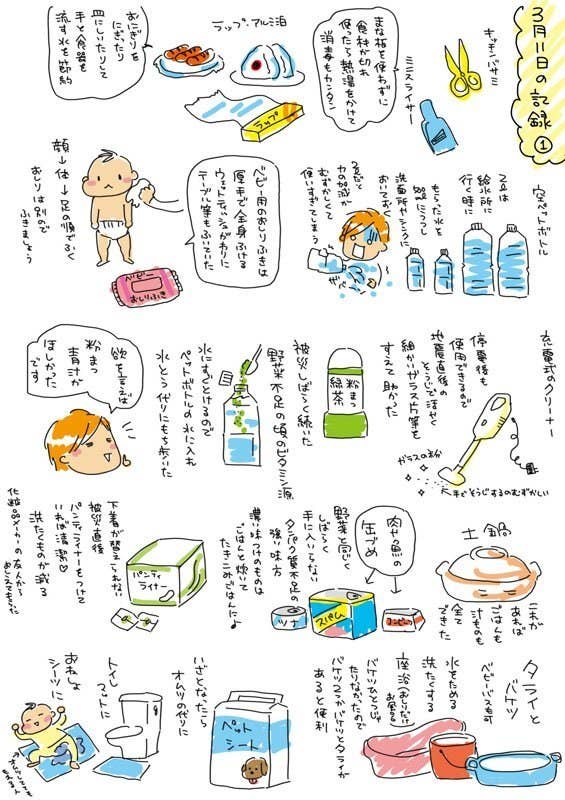 3月11日の記録①
キッチンバサミ
ミニスライサー
まな板を使わずに
食材が切れ
使ったら熱湯をかけて
消毒もカンタン
ラップ・アルミ泊
ラップ
おにぎりを
にぎったり
皿にしいたりして
手と食器を
流す水を節約
空ペットボトル
2Lは
給水所に
行く時に
もらった水を
500にうつし
洗面所やシンクに
おいておく
2Lだと
力の加減が
むずかしくて
使いすぎてしまう
ザバー
ベビー用のおしりふきは
厚手で全身ふける
ウェットティッシュがわりに
テーブル等もふいていた
顔→体→足の順でふく
おしりは別ので
ふきましょう
ベビー
おしりふき
充電式のクリーナー
停電後も
使用できるので
地震直後の
そうじで活やく
細かいガラス片等を
すえて助かった
ガラスの粉
大手でそうじするのむずかしい
粉まつ
緑茶
被災しばらく続いた
野菜不足の頃のビタミン源
水にすぐとけるので
ペットボトルの水に入れ
水とう代りにもち歩いた
欲を言えば
粉まつ
青汁が
ほしかった
です
土鍋
これが
あれば
ごはんも
汁ものも
全て
できた
肉や魚の
缶づめ
野菜と同じく
しばらく
手に入らない
タンパク質不足の
強い味方
濃い味つけのものは
ごはんと炊いて
たきこみごはんに♪
ツナ
スパム
コンビーフ
パンティ
ライナー
下着が替えられない
被災直後
パンティライナーをつけて
いれば清潔♡
洗たくものが減る
化粧品メーカーの友人から
おしえてもらった
タライと
バケツ
ベビーバスも可
水をためる
洗たくする
座浴(おしりだけお風呂)
バケツひとつじゃ
たりなかったので
バケツ2つかバケツとタライが
あると便利
ペット
シート
いざとなったら
オムツの代りに
トイレ
マットに
おねしょ
シーツに